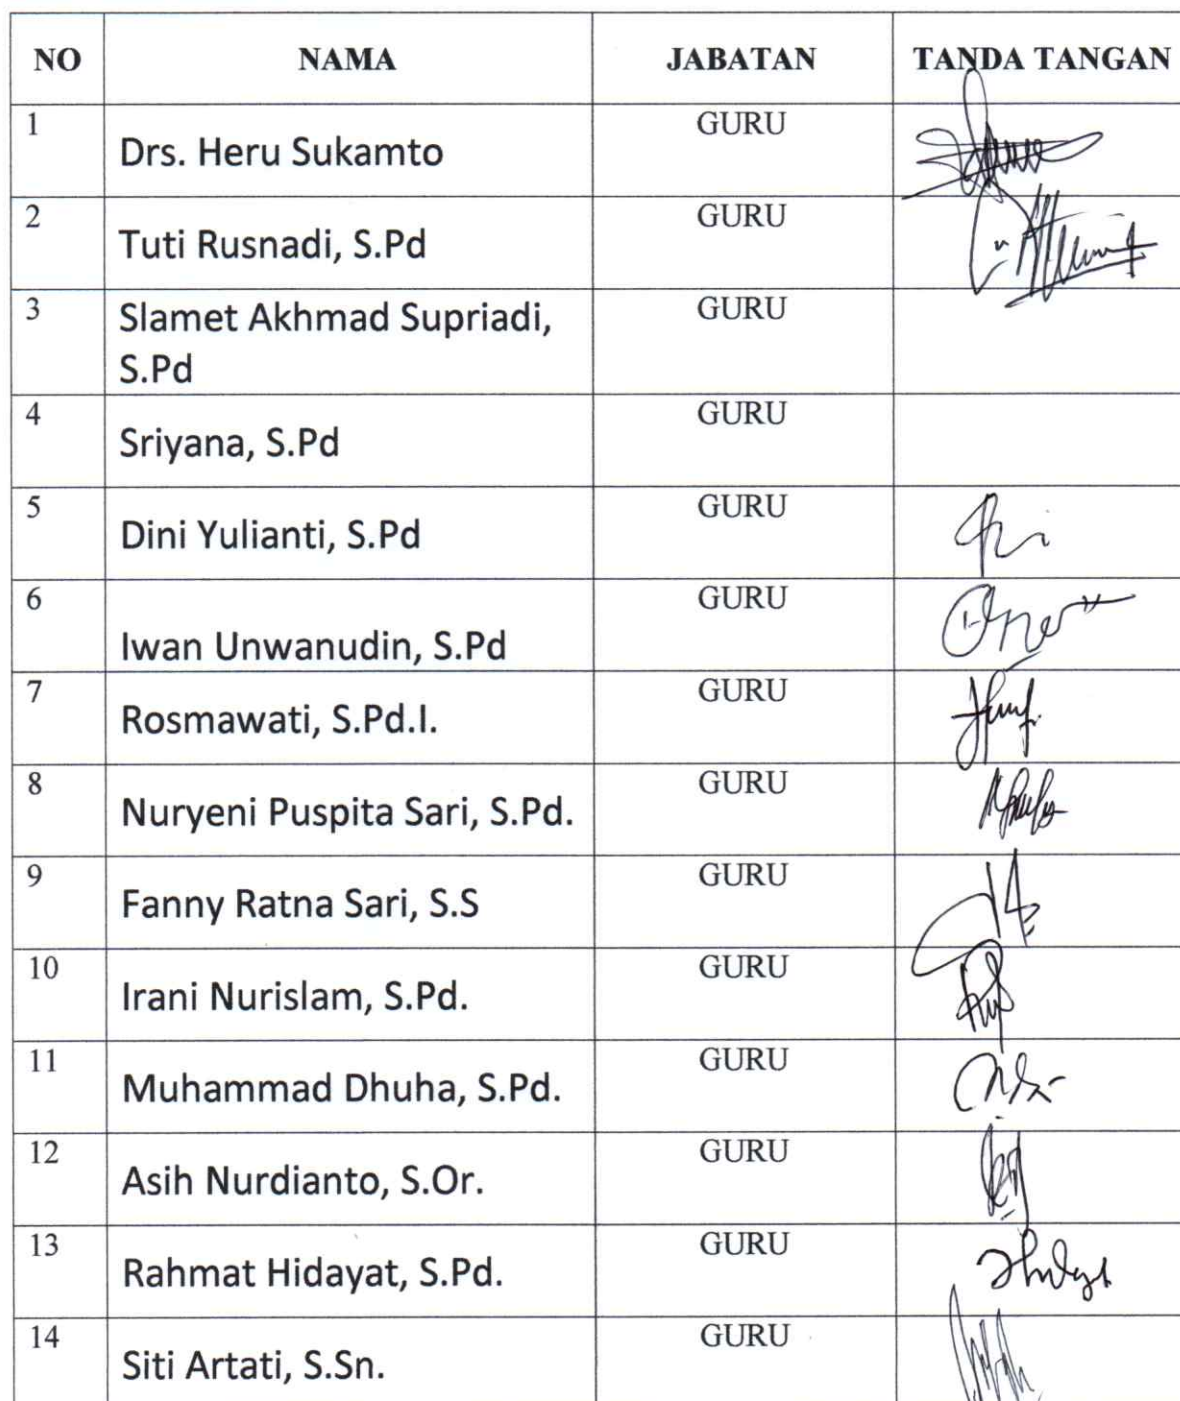 NO NAMA JABATAN TANDA TANGAN
1 Drs. Heru Sukamto GURU
2 Tuti Rusnadi, S.Pd GURU
3 Slamet Akhmad Supriadi, GURU
S.Pd
4 Sriyana, S.Pd GURU
5 Dini Yulianti, S.Pd GURU
6 Iwan Unwanudin, S.Pd GURU
7 Rosmawati, S.Pd.I. GURU
8 Nuryeni Puspita Sari, S.Pd. GURU
9 Fanny Ratna Sari, S.S GURU
10 Irani Nurislam, S.Pd. GURU
11 Muhammad Dhuha, S.Pd. GURU
12 Asih Nurdianto, S.Or. GURU
13 Rahmat Hidayat, S.Pd. GURU
14 Siti Artati, S.Sn. GURU